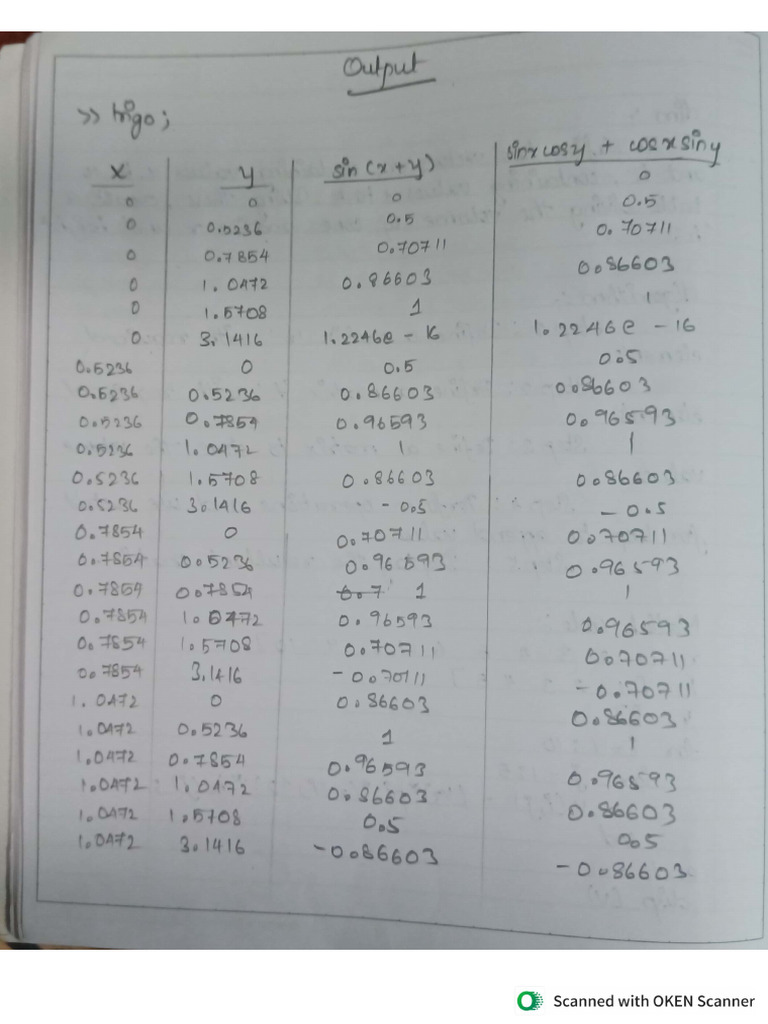 Output
>> trigo;
x y sin(x+y) sinx cosy + cosx siny
0 0 0 0
0 0.5236 0.5 0.5
0 0.7854 0.70711 0.70711
0 1.0472 0.86603 0.86603
0 1.5708 1 1
0 3.1416 1.2246e-16 1.2246e-16
0.5236 0 0.5 0.5
0.5236 0.5236 0.86603 0.86603
0.5236 0.7854 0.96593 0.96593
0.5236 1.0472 1 1
0.5236 1.5708 0.86603 0.86603
0.5236 3.1416 -0.5 -0.5
0.7854 0 0.70711 0.70711
0.7854 0.5236 0.96593 0.96593
0.7854 0.7854 0.7 1 1
0.7854 1.0472 0.96593 0.96593
0.7854 1.5708 0.70711 0.70711
0.7854 3.1416 -0.70711 -0.70711
1.0472 0 0.86603 0.86603
1.0472 0.5236 1 1
1.0472 0.7854 0.96593 0.96593
1.0472 1.0472 0.86603 0.86603
1.0472 1.5708 0.5 0.5
1.0472 3.1416 -0.86603 -0.86603
Scanned with OKEN Scanner